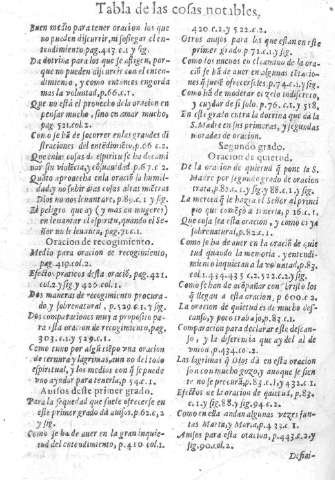 Tabla de las cosas notables,
Buen medio para tener oracion los que
no pueden discurrir, ni sossegar el en-
tendimiento pag.413 c.1 y sig.
Da dotrina para los que se afligen, porque
no pueden discurrir con el enten-
dimiento, y como entonces engorda
mas la voluntad, p.66.c.1
Que no està el provecho de la oracion en
pensar mucho, sino en amar mucho,
pag. 521.col.2.
Como se hà de socorrer en las grandes di
straciones del entẽdimiẽto, p.66 c.2
Que estas cosas de espiritu se hã de ensi
nar sin
Quãto aprovecha en la oraciõ la humil-
dad, y no subir à las cosas altas miẽtras
Dios no levantare, p.86.c.1 y sig.
El peligro que ay (y mas en mugeres)
en levantar el espiritu, quando el Señor
no le levanta, pag.71.c.1.
Oracion de recogimiento.
Medio para oracion de recogimiento,
pag.410.col.2.
Efectos practicos desta oraciõ, pag.421.
col.2.y sig y 426.col.1.
Dos maneras de recogimiento procura-
do y sobrenatural, p.529.c.1 y sig.
Dos comparaciones muy a proposito pa-
ra esta oracion de recogimiento, pag,
303.c.1.y 529.c.1.
Como tuvo por algũ tiẽpo una oracion
de ternura y lagrimas, aun no del todo
espiritual, y los medios con q̃ se puede
uno ayudar para tenerla, p 54.c.1.
Avisos deste primer grado.
Para la sequedad que suele ofrecerse en
este primer grado dà avisos, p.62.c.2
y sig.
Como se ha de aver en la gran inquie-
tud del entendimiento, p.410 col.1.
420.c.1.y 522.c.2.
Otros avisos para los que estan en este
primer grado p 71.c.1.y sig.
Como los nuevos en el camino de la ora-
ciõ se hã de aver en algunas tẽtacio-
nes q̃ suele ofrecerseles, p.74.c.1.y sig.
Como hã de moderar el zelo indiscreto,
y cuydar de si solo. p.76.c.1 y 518.
En este grado entra la dotrina que dà la
S. Madre en sus primeras, y segundas
moradas de oracion.
Segundo grado.
Oracion de quietud.
De la oracion de quietud q̃ pone la S.
Madre por segundo grado de oracion
trata, p.87.c.1.y sig y 88.c.1.y sig.
La merced q̃ le hazia el Señor al princi
pio que començò a tenerla, p 16.c.1.
Que cosa sea esta oracion, y como es ya
sobrenatural, p.82.c.1.
Como se ha de aver en la oraciõ de quie
tud quando la memoria, y entendi-
miento inquietaren a la volũtad, p.83.
col.1.434-435 c.2.522.c.2.y sig.
Como se han de acõpañar con Cristo los
q̃ llegan a esta oracion, p 600.c.2.
La oracion de quietud es de mucho des-
canso, y poco trabajo, p.83.c.1.
Comparacion para declarar este descan-
so, y la diferencia que ay del al de
union, p.434.co.2.
Las lagrimas q̃ Dios dà en esta oracion
son con mucho gozo, y aunque se sien
te no se procurã, p.83.c.1.y 432.c.1.
Efectos de la oracion de quietud, p.83.
c.1.y sig.88.y sig.94.c.2.
Como en esta andan algunas vezes jun-
tas Marta, y Maria, p.434.c.1.
Avisos para esta oracion, p.433.c.2.y
sig.90.col.2.